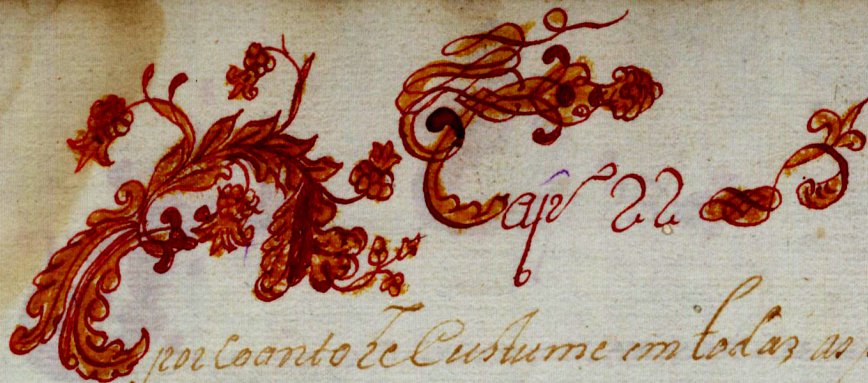 Cap.º 22
E por Coanto he Custume em todas as